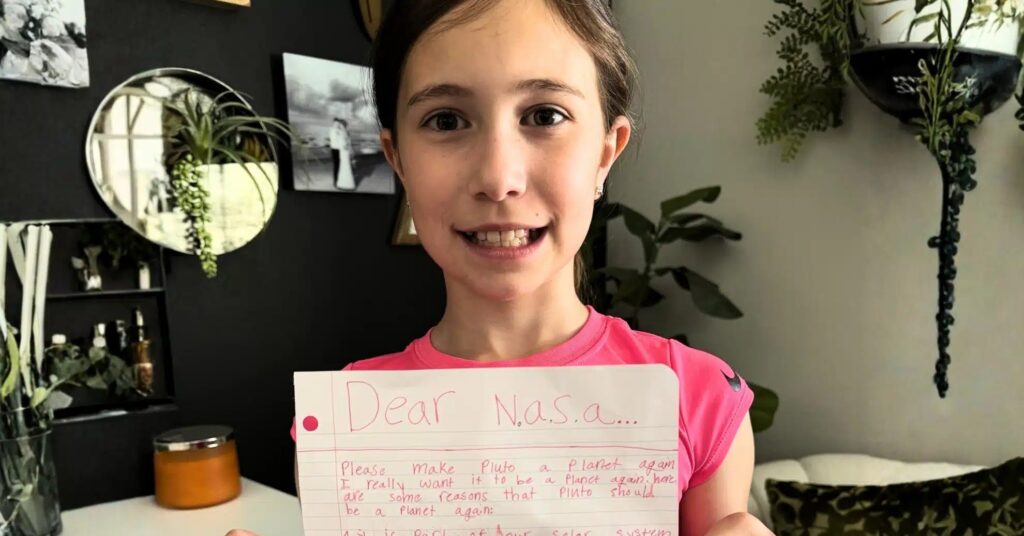 Dear N.a.s.a...
Please make Pluto a Planet again
I really want it to be a Planet again. here
are some reasons that Pluto should
be a Planet again:
it is Part of our solar system